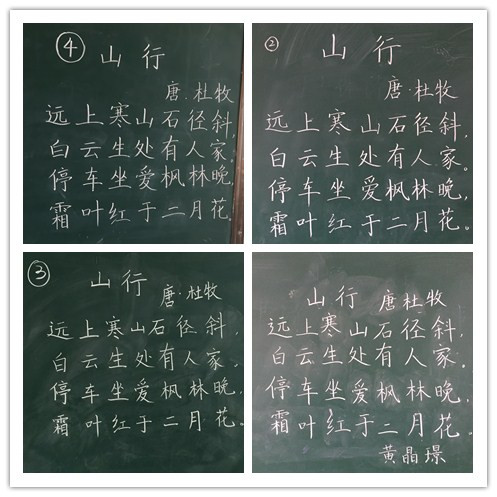 ④ 山行
唐·杜牧
远上寒山石径斜,
白云生处有人家。
停车坐爱枫林晚,
霜叶红于二月花。
② 山行
唐·杜牧
远上寒山石径斜,
白云生处有人家。
停车坐爱枫林晚,
霜叶红于二月花。
③ 山行
唐·杜牧
远上寒山石径斜,
白云生处有人家.
停车坐爱枫林晚,
霜叶红于二月花。
山行 唐杜牧
远上寒山石径斜,
白云生处有人家。
停车坐爱枫林晚,
霜叶红于二月花。
黄晶璟